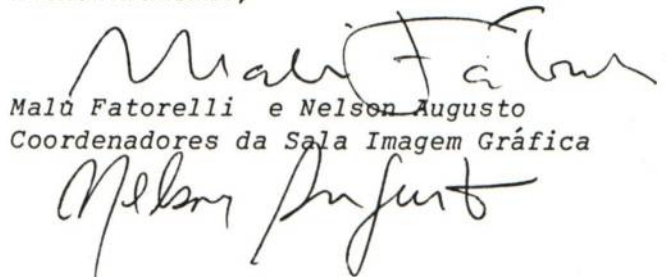 Malú Fatorelli e Nelson Augusto
Coordenadores da Sala Imagem Gráfica
Nelson Augusto